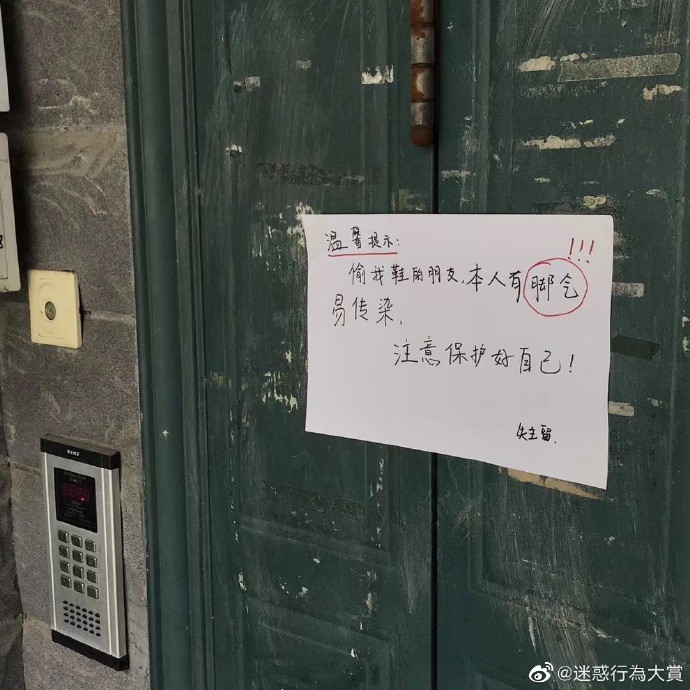 温馨提示:
!!!
偷我鞋的朋友,本人有脚气
易传染,
注意保护好自己!
失主留.
@迷惑行為大賞